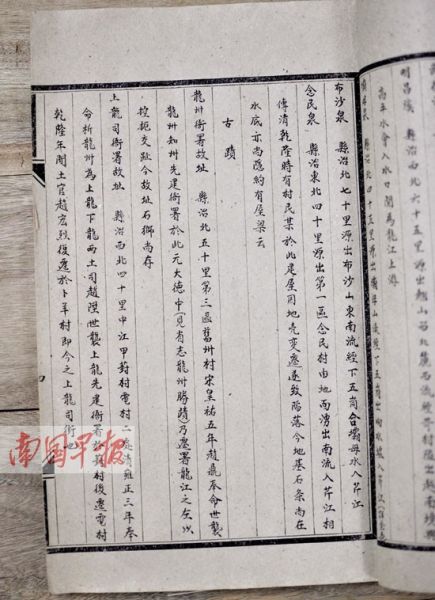 明昌隘 縣治西北六十五里源出
高年水會入水口關為龍江上游
縣治東北四十五里源出
布沙泉 縣治北七十里源出布沙山東南流經下五崗合壩母水入芹江
念民泉 縣治東北四十里源出第一區念民村由地而湧出南流入芹江相
傳清乾隆時有村民某於此建屋因地壳變遷遂致陷落今地基石条尚在
水底亦尚隱約有屋梁云
古蹟
龍州衙署故址 縣治北五十里第三區舊州村宋皇祐五年趙鼎奉命世襲
龍州知州先建衙署於此元大德中(見省志龍州勝蹟)乃遷署龍江之左以
控扼交趾今故址石獅尚存
上龍司衙署故址 縣治西北四十里中江甲對村電村二處清雍正三年奉
命析龍州為上龍下龍兩土司趙陞世襲上龍先建衙署於對村後遷電村
乾隆年間土官趙宏烈復遷於卜羊村即今之上龍司衙也
南国早报